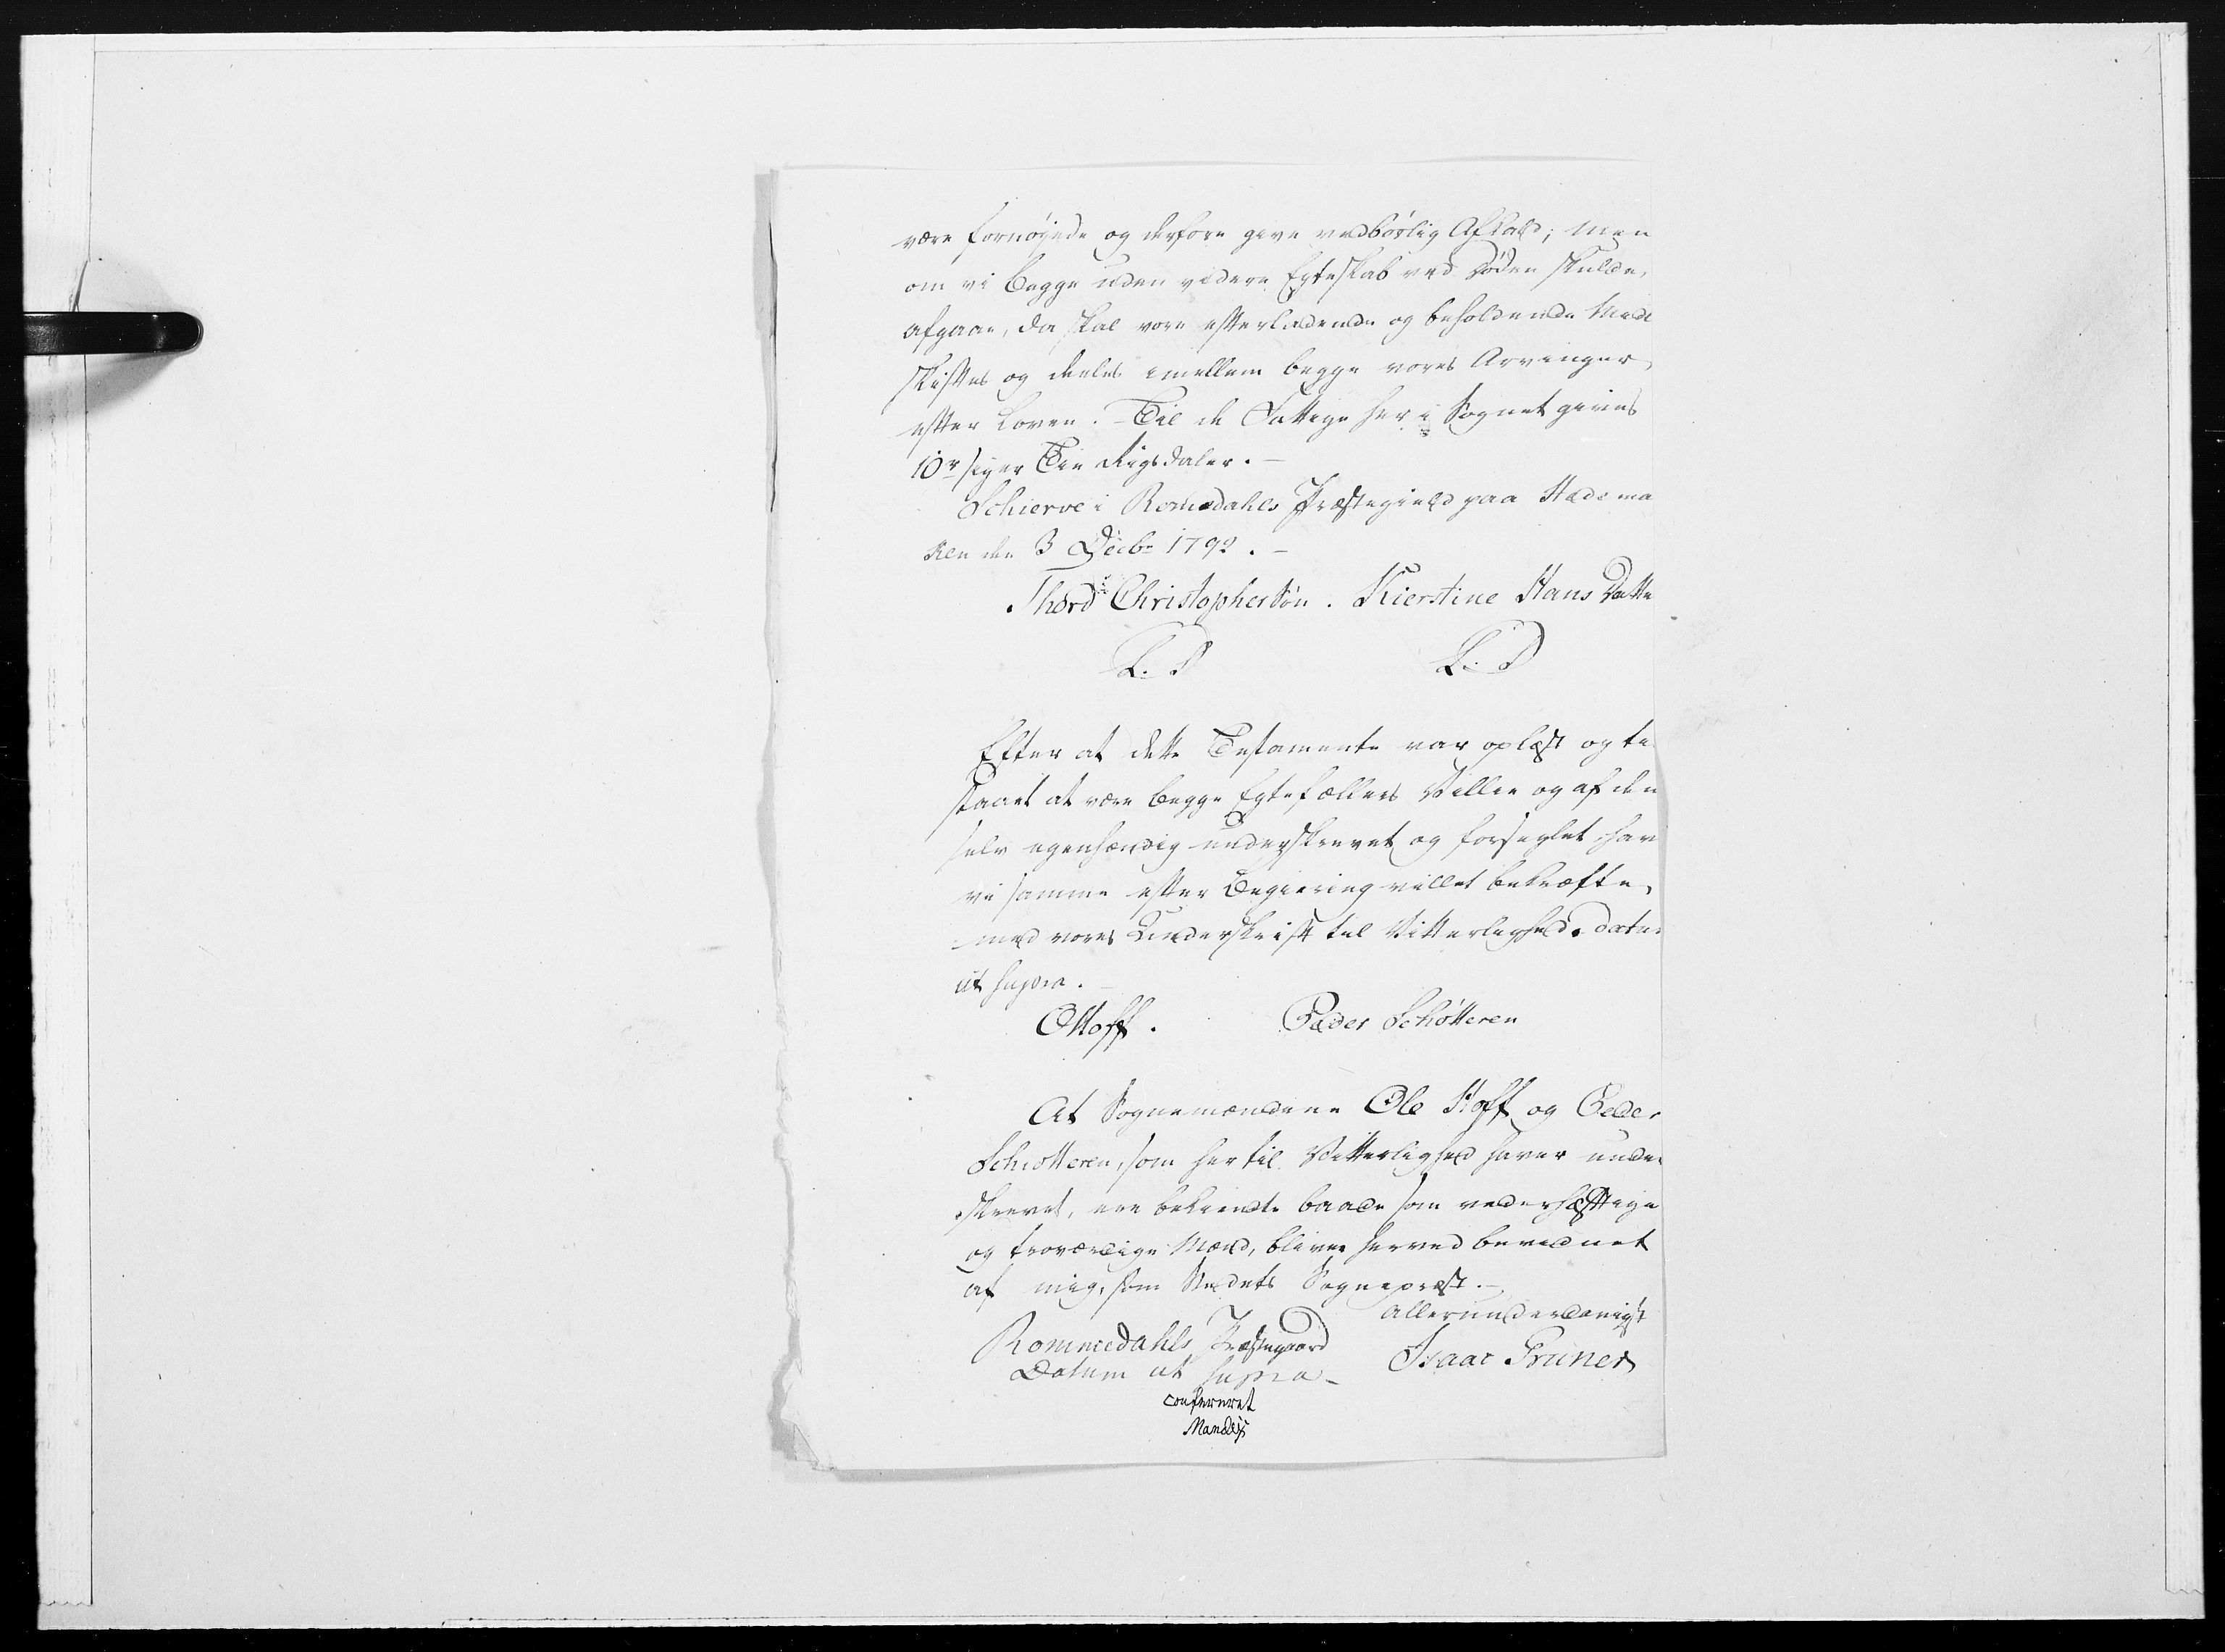 være fornøyede og derfore give vedbørlig Afkald; men
om vi begge uden videre Egteskab ved Døden skulde
afgaae, da skal vore efterladende og beholdende Midl
skiftes og deeles imellem begge vores Arvinger
efter Loven. Til de Fattige her i Sognet gives
10r siger Tie Rigsdaler.
Schierve i Romedahls Præstegield paa Hedema
ken den 3 Decbr 1792.
Thord Christophersøn. Kierstine Hans Datte
L. S L. S
Efter at dette Testamente var oplæst og te
staaet at være begge Egtefællers Villie og af dem
selv egenhændig underskrevet og forseglet, har
vi samme efter Begiering villet bekræfte
med vores Underskrift til Vitterlighed. datu
ut supra.
OHoff. Peder Schøtteren
At Sognemændene Ole Hoff og Peder
Schiotteren, som her til Vitterlighed haver under
skrevet, ere bekiendte baade som vederhæftige
og troværdige Mænd, bliver herved bevidnet
af mig, som Stædets Sognepræst.
allerunderdanigst
Rommedahls Præstegaard
Isaac Gruner
Datum ut supra
confereret
Mandix